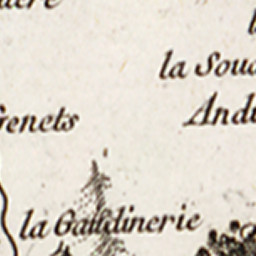 la Soud
Andu
Genets
la Gaudinerie